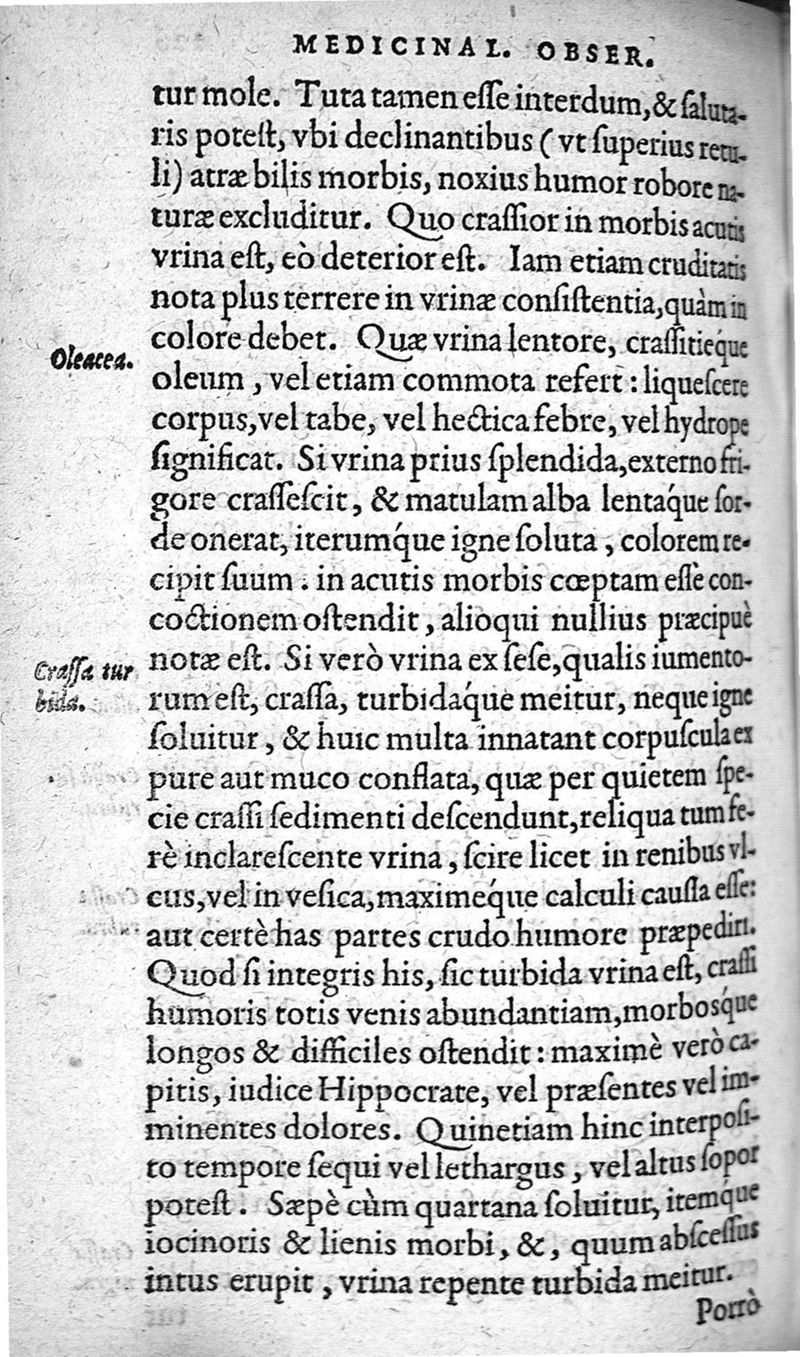 MEDICINAL. OBSER.
tur mole. Tuta tamen eſſe interdum, & ſaluta-
ris poteſt, vbi declinantibus (vt ſuperius retu-
li) atræ bilis morbis, noxius humor robore na-
turæ excluditur. Quo craſſior in morbis acutis
vrina eſt, eò deterior eſt. Iam etiam cruditatis
nota plus terrere in vrinæ conſiſtentia, quàm in
colore debet. Quæ vrina lentore, craſſitieq́ue
Oleacea.
oleum, vel etiam commota refert: liqueſcere
corpus, vel tabe, vel hectica febre, vel hydrope
ſignificat. Si vrina prius ſplendida, externo fri-
gore craſſeſcit, & matulam alba lentaq́ue ſor-
de onerat, iterumq́ue igne ſoluta, colorem re-
cipit ſuum. in acutis morbis cœptam eſſe con-
coctionem oſtendit, alioqui nullius præcipuè
notæ eſt. Si verò vrina ex ſeſe, qualis iumento-
Craſſa tur
bida.
rum eſt, craſſa, turbidaq́ue meitur, neque igne
ſoluitur, & huic multa innatant corpuſcula ex
pure aut muco conflata, quæ per quietem ſpe-
cie craſſi ſedimenti deſcendunt, reliqua tum fe-
rè inclareſcente vrina, ſcire licet in renibus vl-
cus, vel in veſica, maximeq́ue calculi cauſſa eſſe:
aut certè has partes crudo humore præpediri.
Quod ſi integris his, ſic turbida vrina eſt, craſſi
humoris totis venis abundantiam, morboſq́ue
longos & difficiles oſtendit: maximè verò ca-
pitis, iudice Hippocrate, vel præſentes vel im-
minentes dolores. Quinetiam hinc interpoſi-
to tempore ſequi vel lethargus, vel altus ſopor
poteſt. Sæpè cùm quartana ſoluitur, itemq́ue
iocinoris & lienis morbi, &, quum abſceſſus
intus erupit, vrina repente turbida meitur.
Porrò